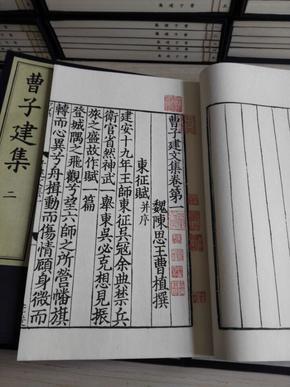 曹子建集 二
曹子建文集卷第一
魏陳思王曹植撰
東征賦 并序
建安十九年王師東征吳寇余典禁兵
衛官省然神武一舉東吳必克想見振
旅之盛故作賦一篇
登城隅之飛觀兮望六師之所營幡旗
轉而心異兮舟楫動而傷情顧身微而